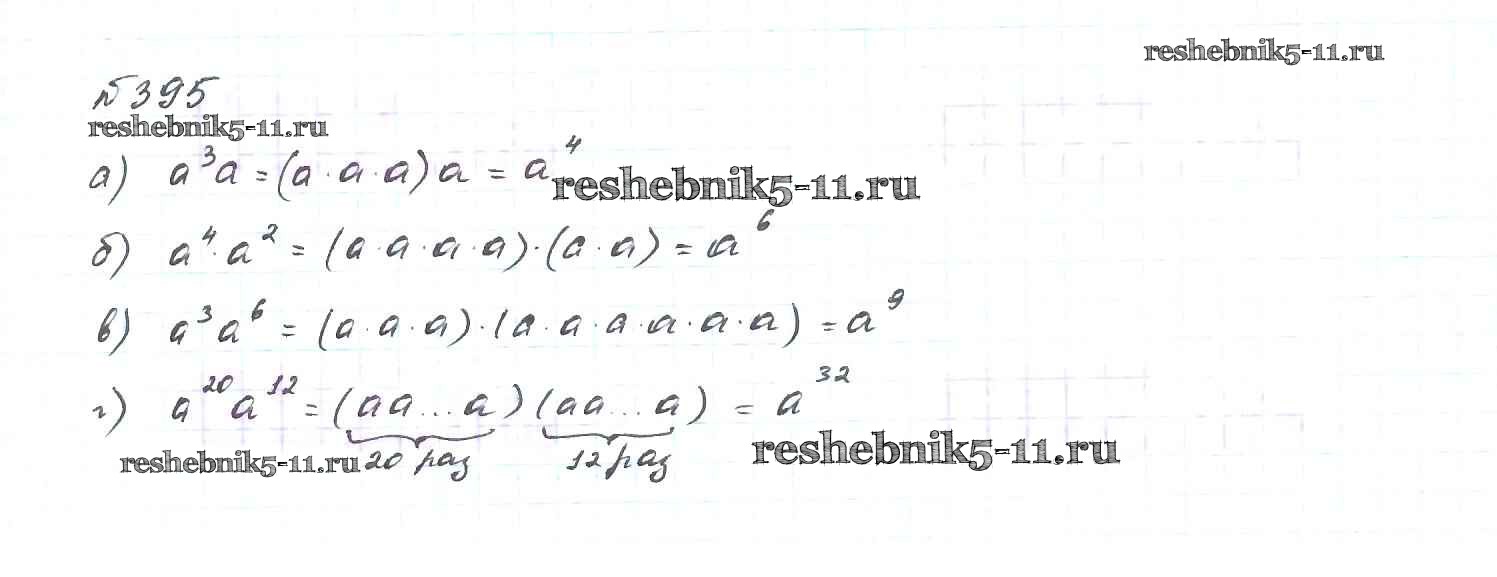 reshebnik5-11.ru
№395
reshebnik5-11.ru
а) a³a = (a · a · a) a = a⁴
reshebnik5-11.ru
б) a⁴ · a² = (a · a · a · a) · (a · a) = a⁶
в) a³a⁶ = (a · a · a) · (a · a · a · a · a · a) = a⁹
г) a²⁰a¹² = (aa...a) (aa...a) = a³²
reshebnik5-11.ru 20 раз 12 раз reshebnik5-11.ru